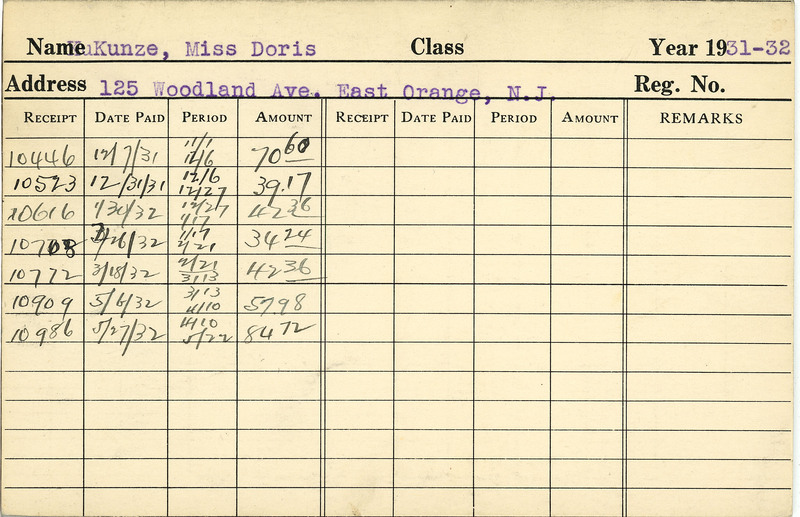 Name KuKunze, Miss Doris Class Year 1931-32
Address 125 Woodland Ave. East Orange, N.J. Reg. No.
RECEIPT DATE PAID PERIOD AMOUNT RECEIPT DATE PAID PERIOD AMOUNT REMARKS
10446 12/7/31 11/1 12/6 70 60
10523 12/31/31 12/6 12/27 39.17
10616 1/30/32 12/27 1/17 42 36
10708 2/26/32 1/17 2/21 34 24
10772 3/18/32 2/21 3/13 42 36
10909 5/6/32 3/13 4/10 57.98
10986 5/27/32 4/10 5/22 84 72